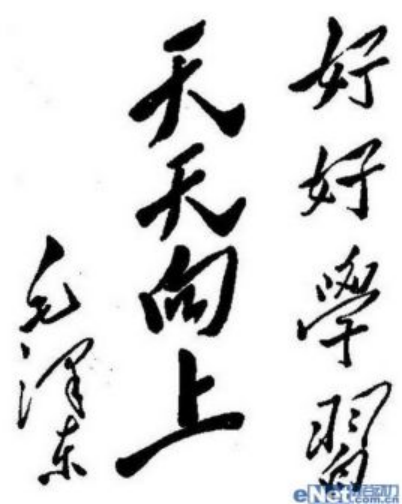 好好學習
天天向上
毛澤东
eNet.com.cn